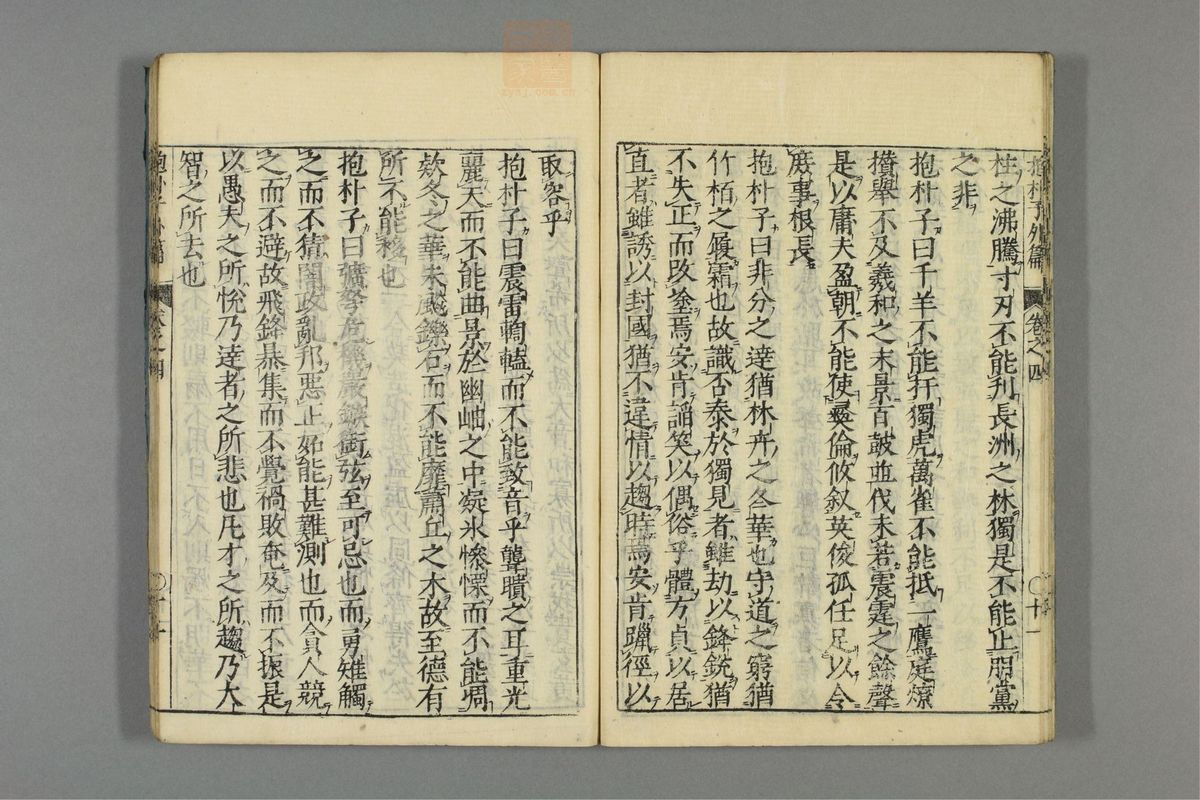 抱朴子外篇 卷之四 ○十一
柱之沸騰寸刃不能刋長洲之林獨是不能止朋黨
之非
抱朴子曰千羊不能扞獨虎萬雀不能抵一鷹庭燎
攢舉不及羲和之末景百皷並伐未若震霆之餘聲
是以庸夫盈朝不能使彝倫攸叙英俊孤任足以令
庶事根長
抱朴子曰非分之達猶林卉之冬華也守道之窮猶
竹栢之履霜也故識否泰於獨見者雖劫以鋒銳猶
不失正而改塗焉安肯謟笑以偶俗乎體方貞以居
直者雖誘以封國猶不違情以趨時焉安肯躐徑以
取容乎
抱朴子曰震雷輷輵而不能致音乎聾聵之耳重光
麗天而不能曲景於幽岫之中凝氷慘慄而不能凋
欵冬之華朱飈鑠石而不能靡蕭丘之木故至德有
所不能移也
抱朴子曰彍弩危機嚴鏃銜弦至可忌也而勇雉觸
之而不猜闇政亂邦惡正妬能甚難測也而貪人競
之而不避故飛鋒暴集而不覺禍敗奄及而不振是
以愚夫之所悅乃達者之所悲也凡才之所趨乃大
智之所去也
zysj.com.cn